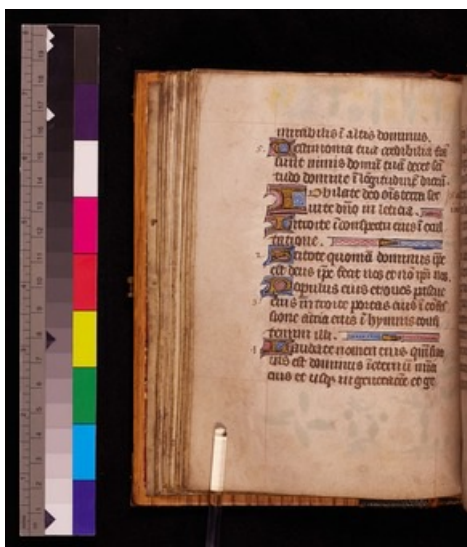 mirabilis ī altis dominus.
5. Testimonia tua credibilia fac
ta sunt nimis domū tuā decet san
titudo domine ī lōgitudinē dierū.
Jubilate deo oīs terra ser
uite dn̄o in leticia.
Introite ī conspectu eius ī exul
tatione.
2. Scitote quoniā dominus ip̄e
est deus ip̄e fecit nos et nō ip̄i nos.
Populus eius et oues pascue
3 eius introite portas eius ī confes
sione atria eius ī hymnis confi
temini illi.
4 Laudate nomen eius quoniā sua
uis est dominus ī eternū mīa
eius et usq; in generacōe et ge